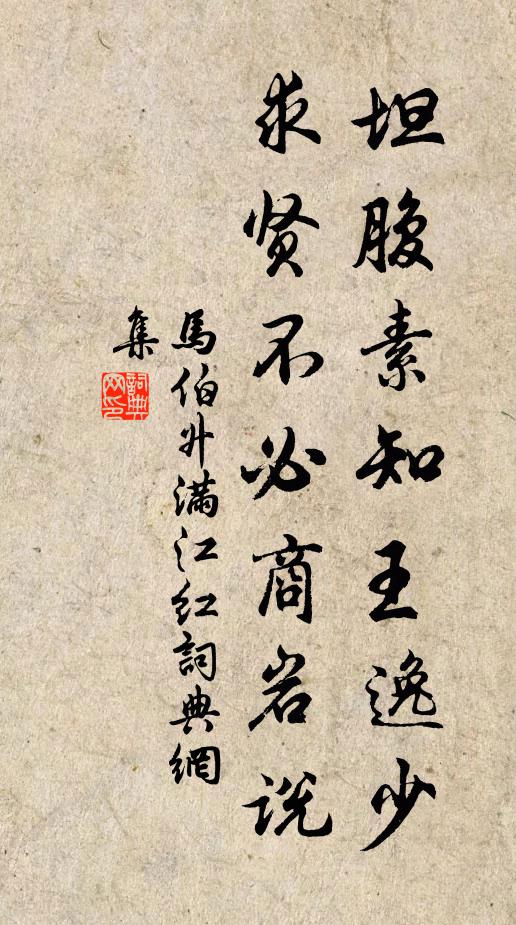 坦腹素知王逸少
求贤不必商岩说
馬伯升满江红詞典網
集
詞典
网印